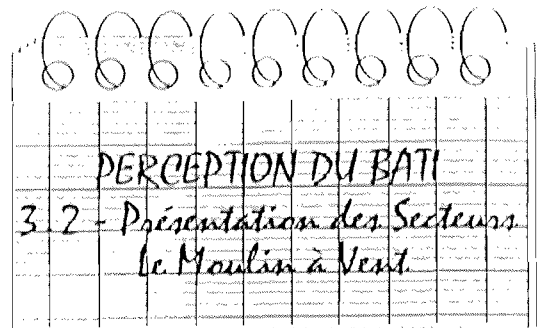 PERCEPTION DU BATI
3.2 - Présentation des Secteurs
Le Moulin à Vent